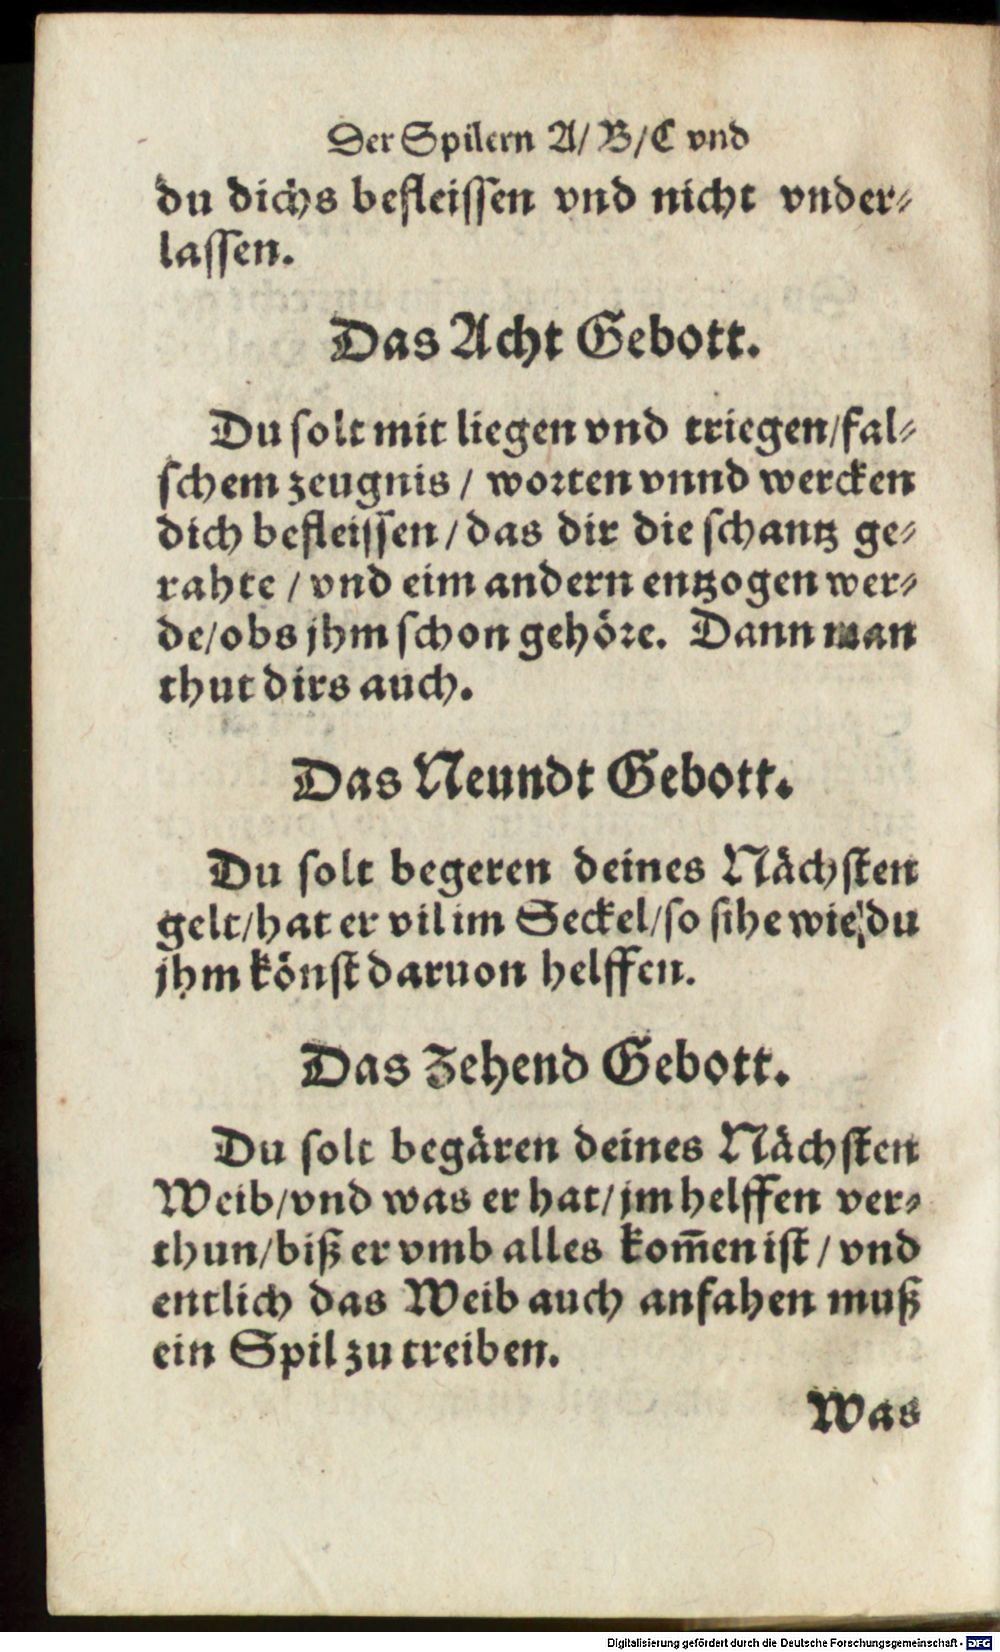 Der Spilern A/ B/ C vnd
du dichs befleissen vnd nicht vnder⸗
lassen.
Das Acht Gebott.
Du solt mit liegen vnd triegen/fal⸗
schem zeugnis / worten vnnd wercken
dich befleissen / das dir die schantz ge⸗
rahte / vnd eim andern entzogen wer⸗
de/obs jhm schon gehöre. Dann man
thut dirs auch.
Das Neundt Gebott.
Du solt begeren deines Nächsten
gelt/hat er vil im Seckel/so sihe wie du
jhm könst daruon helffen.
Das Zehend Gebott.
Du solt begären deines Nächsten
Weib/vnd was er hat/jm helffen ver⸗
thun/biß er vmb alles kom̄en ist / vnd
entlich das Weib auch anfahen muß
ein Spil zu treiben.
Was
Digitalisierung gefördert durch die Deutsche Forschungsgemeinschaft - DFG